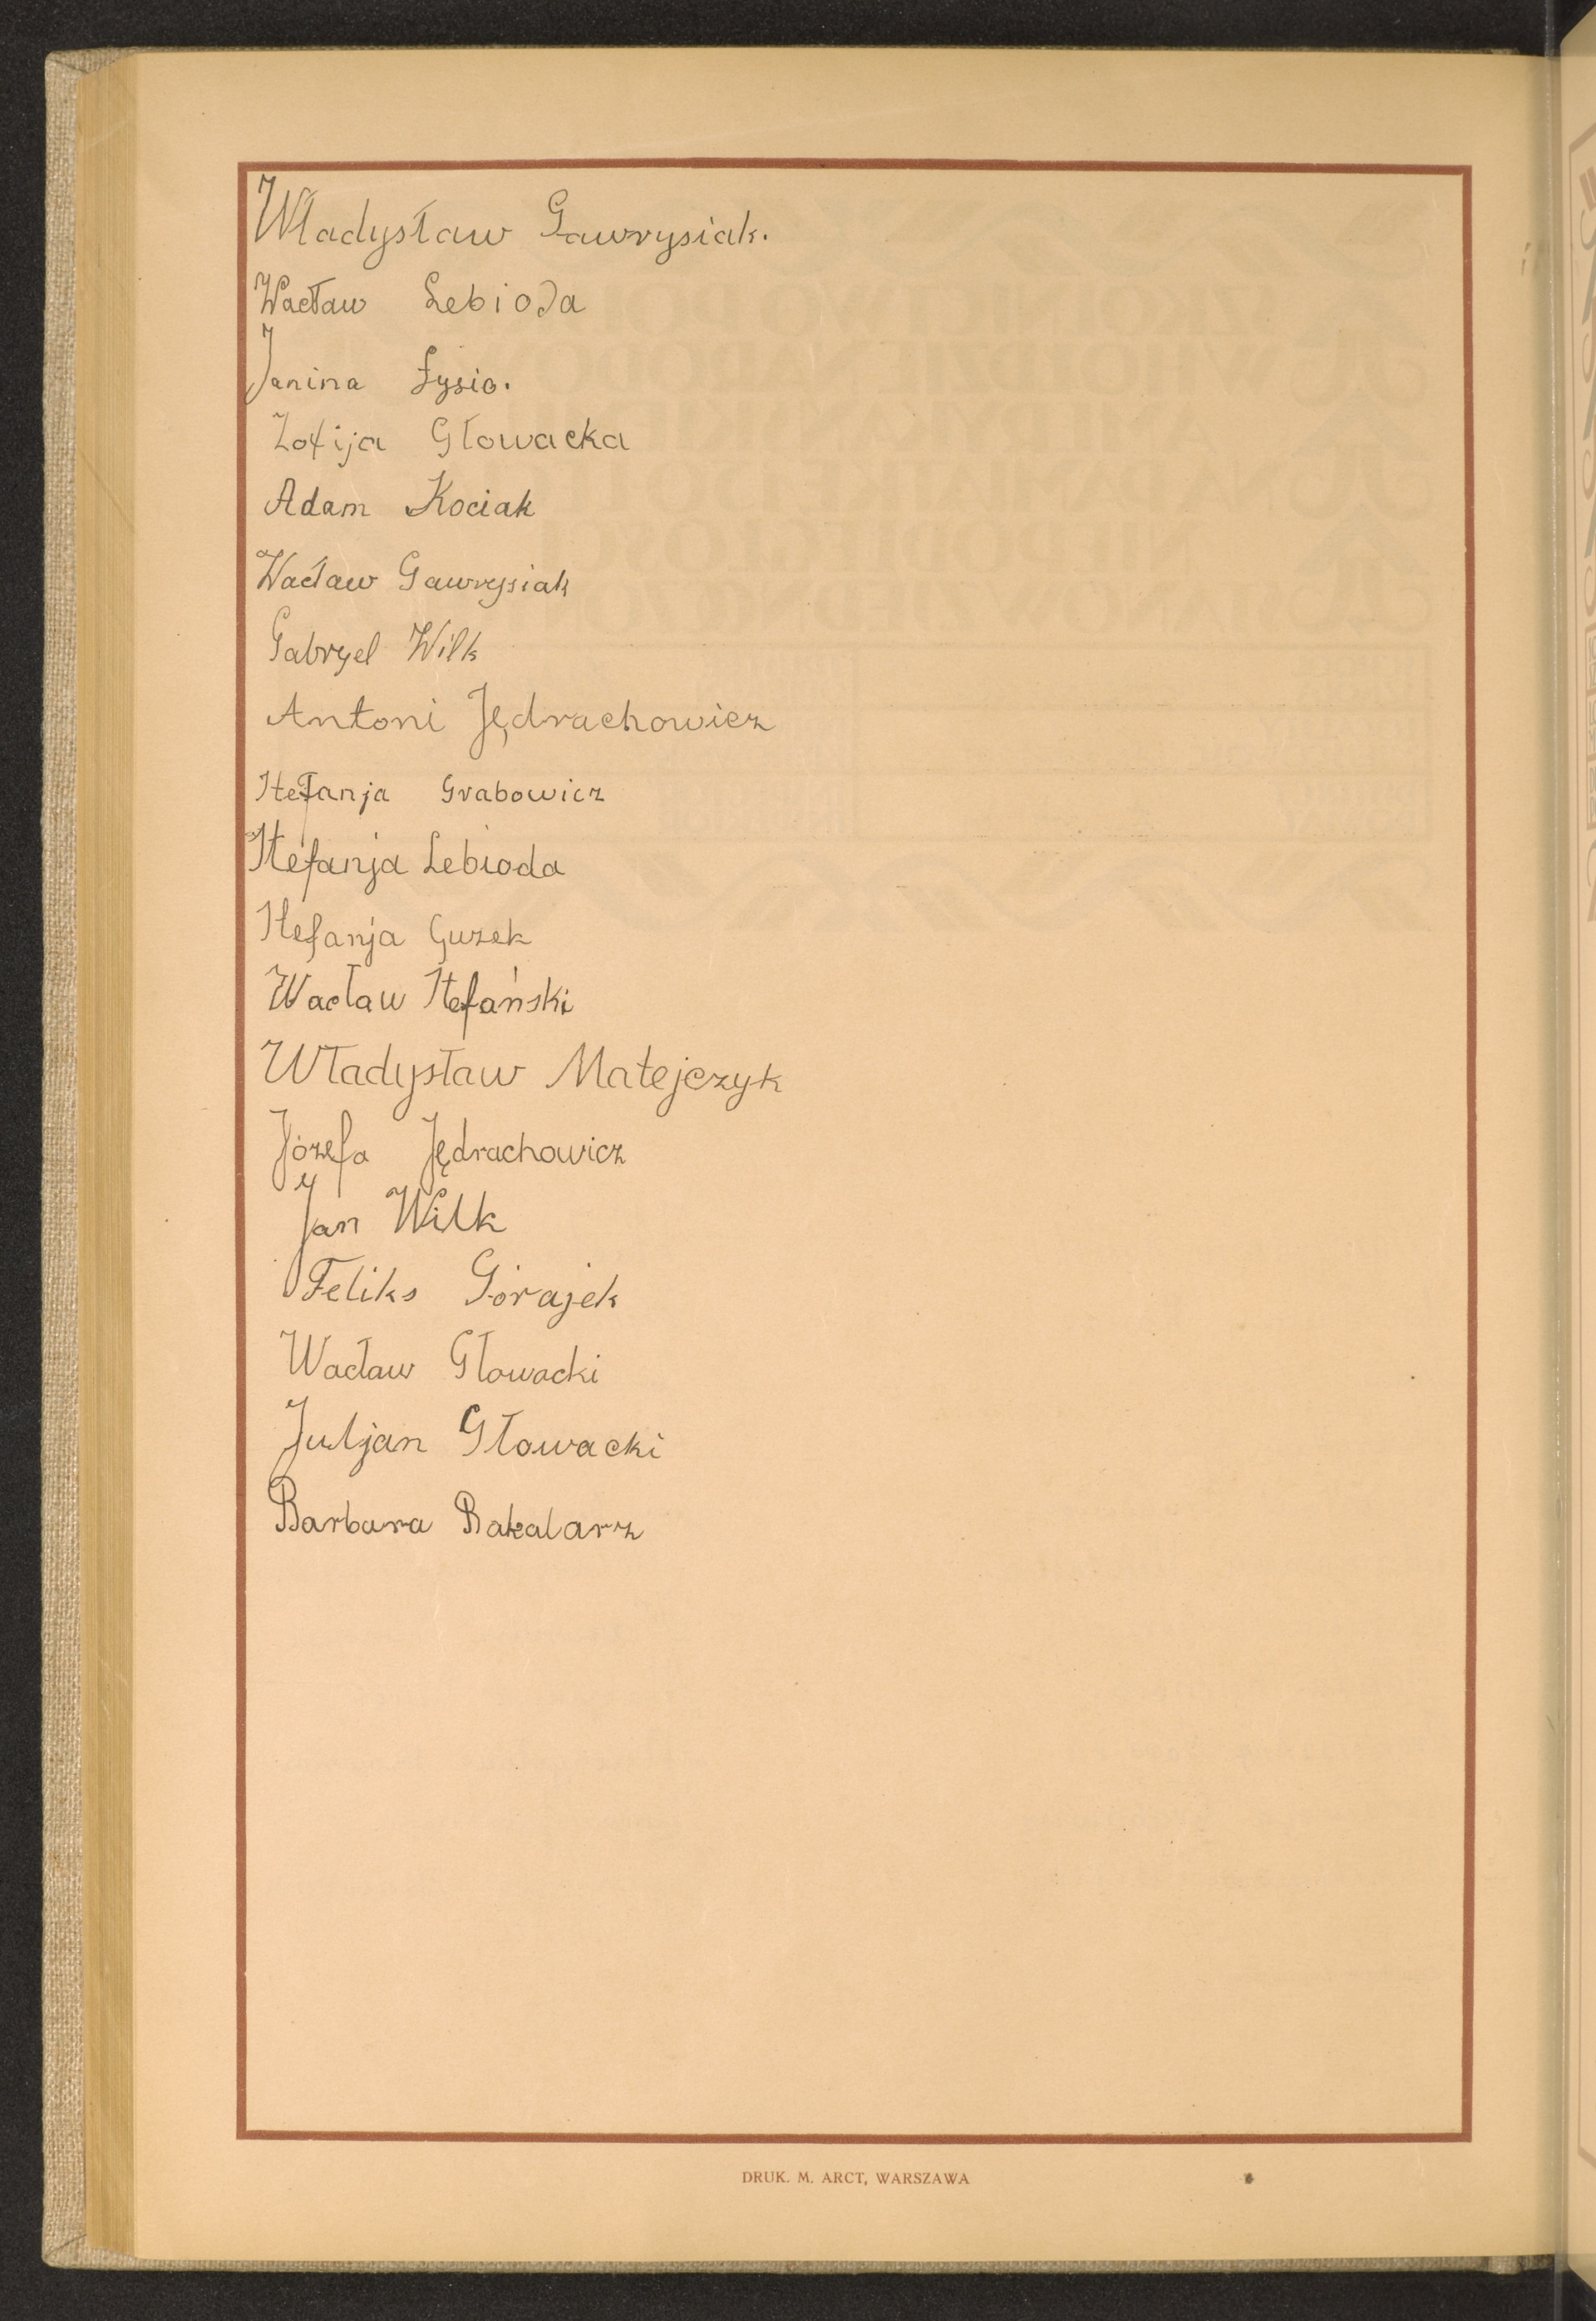 Władysław Gawrysiak.
Wacław Lebioda
Janina Łysio.
Zofija Głowacka
Adam Kociak
Wacław Gawrysiak
Gabryel Wilk
Antoni Jędrachowicz
Stefanja Grabowicz
Stefanja Lebioda
Stefanja Guzek
Wacław Stefański
Władysław Matejczyk
Józefa Jędrachowicz
Jan Wilk
Feliks Górajek
Wacław Głowacki
Juljan Głowacki
Barbara Bakalarz
DRUK. M. ARCT, WARSZAWA